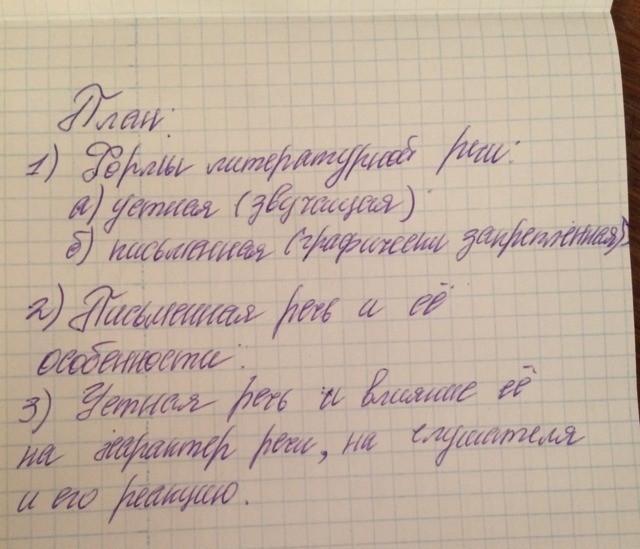 План:
1) Формы литературной речи:
а) устная (звучащая)
б) письменная (графически закреплённая)
2) Письменная речь и её
особенности.
3) Устная речь и влияние её
на характер речи, на слушателя
и его реакцию.